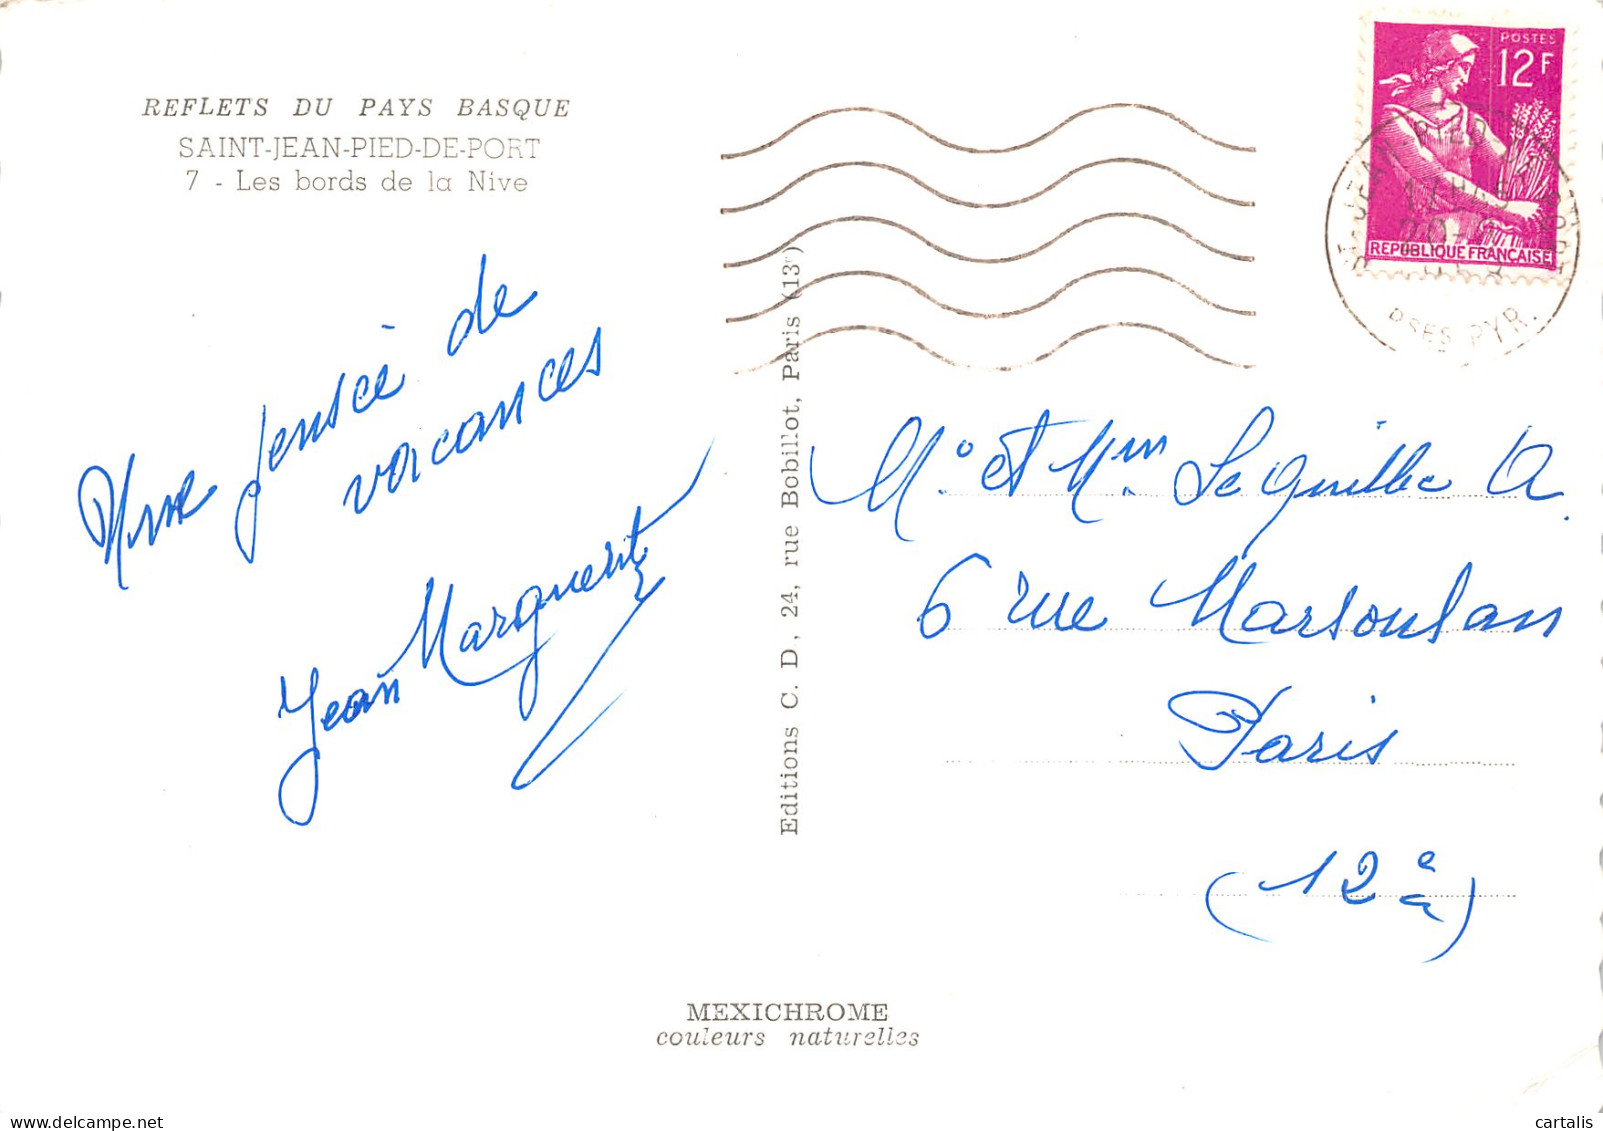 REFLETS DU PAYS BASQUE
SAINT-JEAN-PIED-DE-PORT
7 - Les bords de la Nive
POSTES
12F
REPUBLIQUE FRANÇAISE
17H45
BSES PYR.
Une pensée de
vacances
Jean Marguerite
Editions C. D, 24, rue Bobillot, Paris (13e)
Mr et Mm Le Quillec A.
6 rue Marsoulan
Paris
(12e)
MEXICHROME
couleurs naturelles
delcampe.net
cartalis